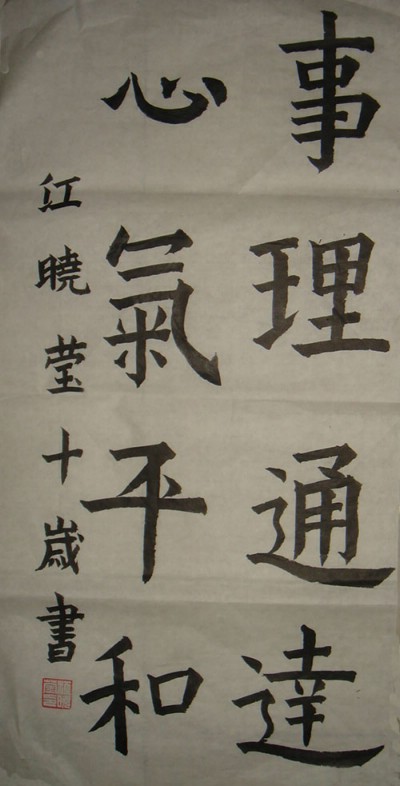 事理通達
心氣平和
江曉莹十歲書